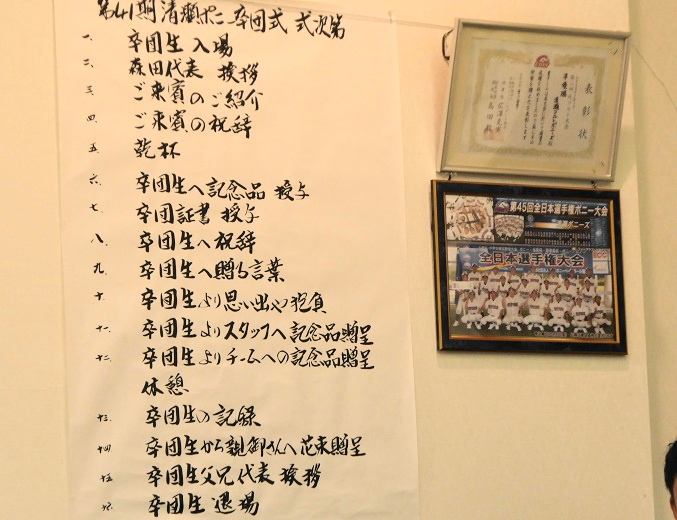 第41期 清瀬ポニー 卒団式 式次第
一、 卒団生 入場
二、 森田代表 挨拶
三、 ご来賓のご紹介
四、 ご来賓の祝辞
五、 乾杯
六、 卒団生へ記念品 授与
七、 卒団証書 授与
八、 卒団生へ祝辞
九、 卒団生へ贈る言葉
十、 卒団生より思い出や抱負
十一、 卒団生よりスタッフへ記念品贈呈
十二、 卒団生よりチームへの記念品贈呈
休憩
十三、 卒団生の記録
十四、 卒団生から親御さんへ花束贈呈
十五、 卒団生父兄代表 挨拶
十六、 卒団生 退場
表彰状
準優勝
第45回全日本選手権ポニー大会
全日本選手権大会